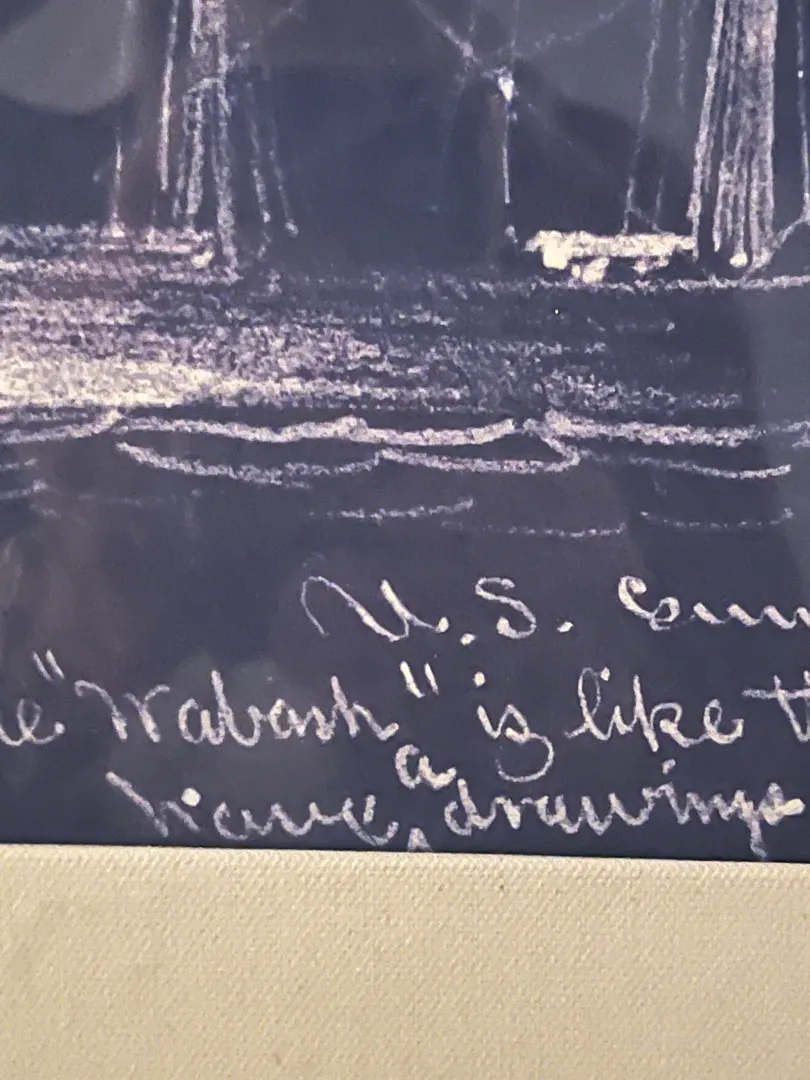 U.S.
"Wabash" is like
have a drawings